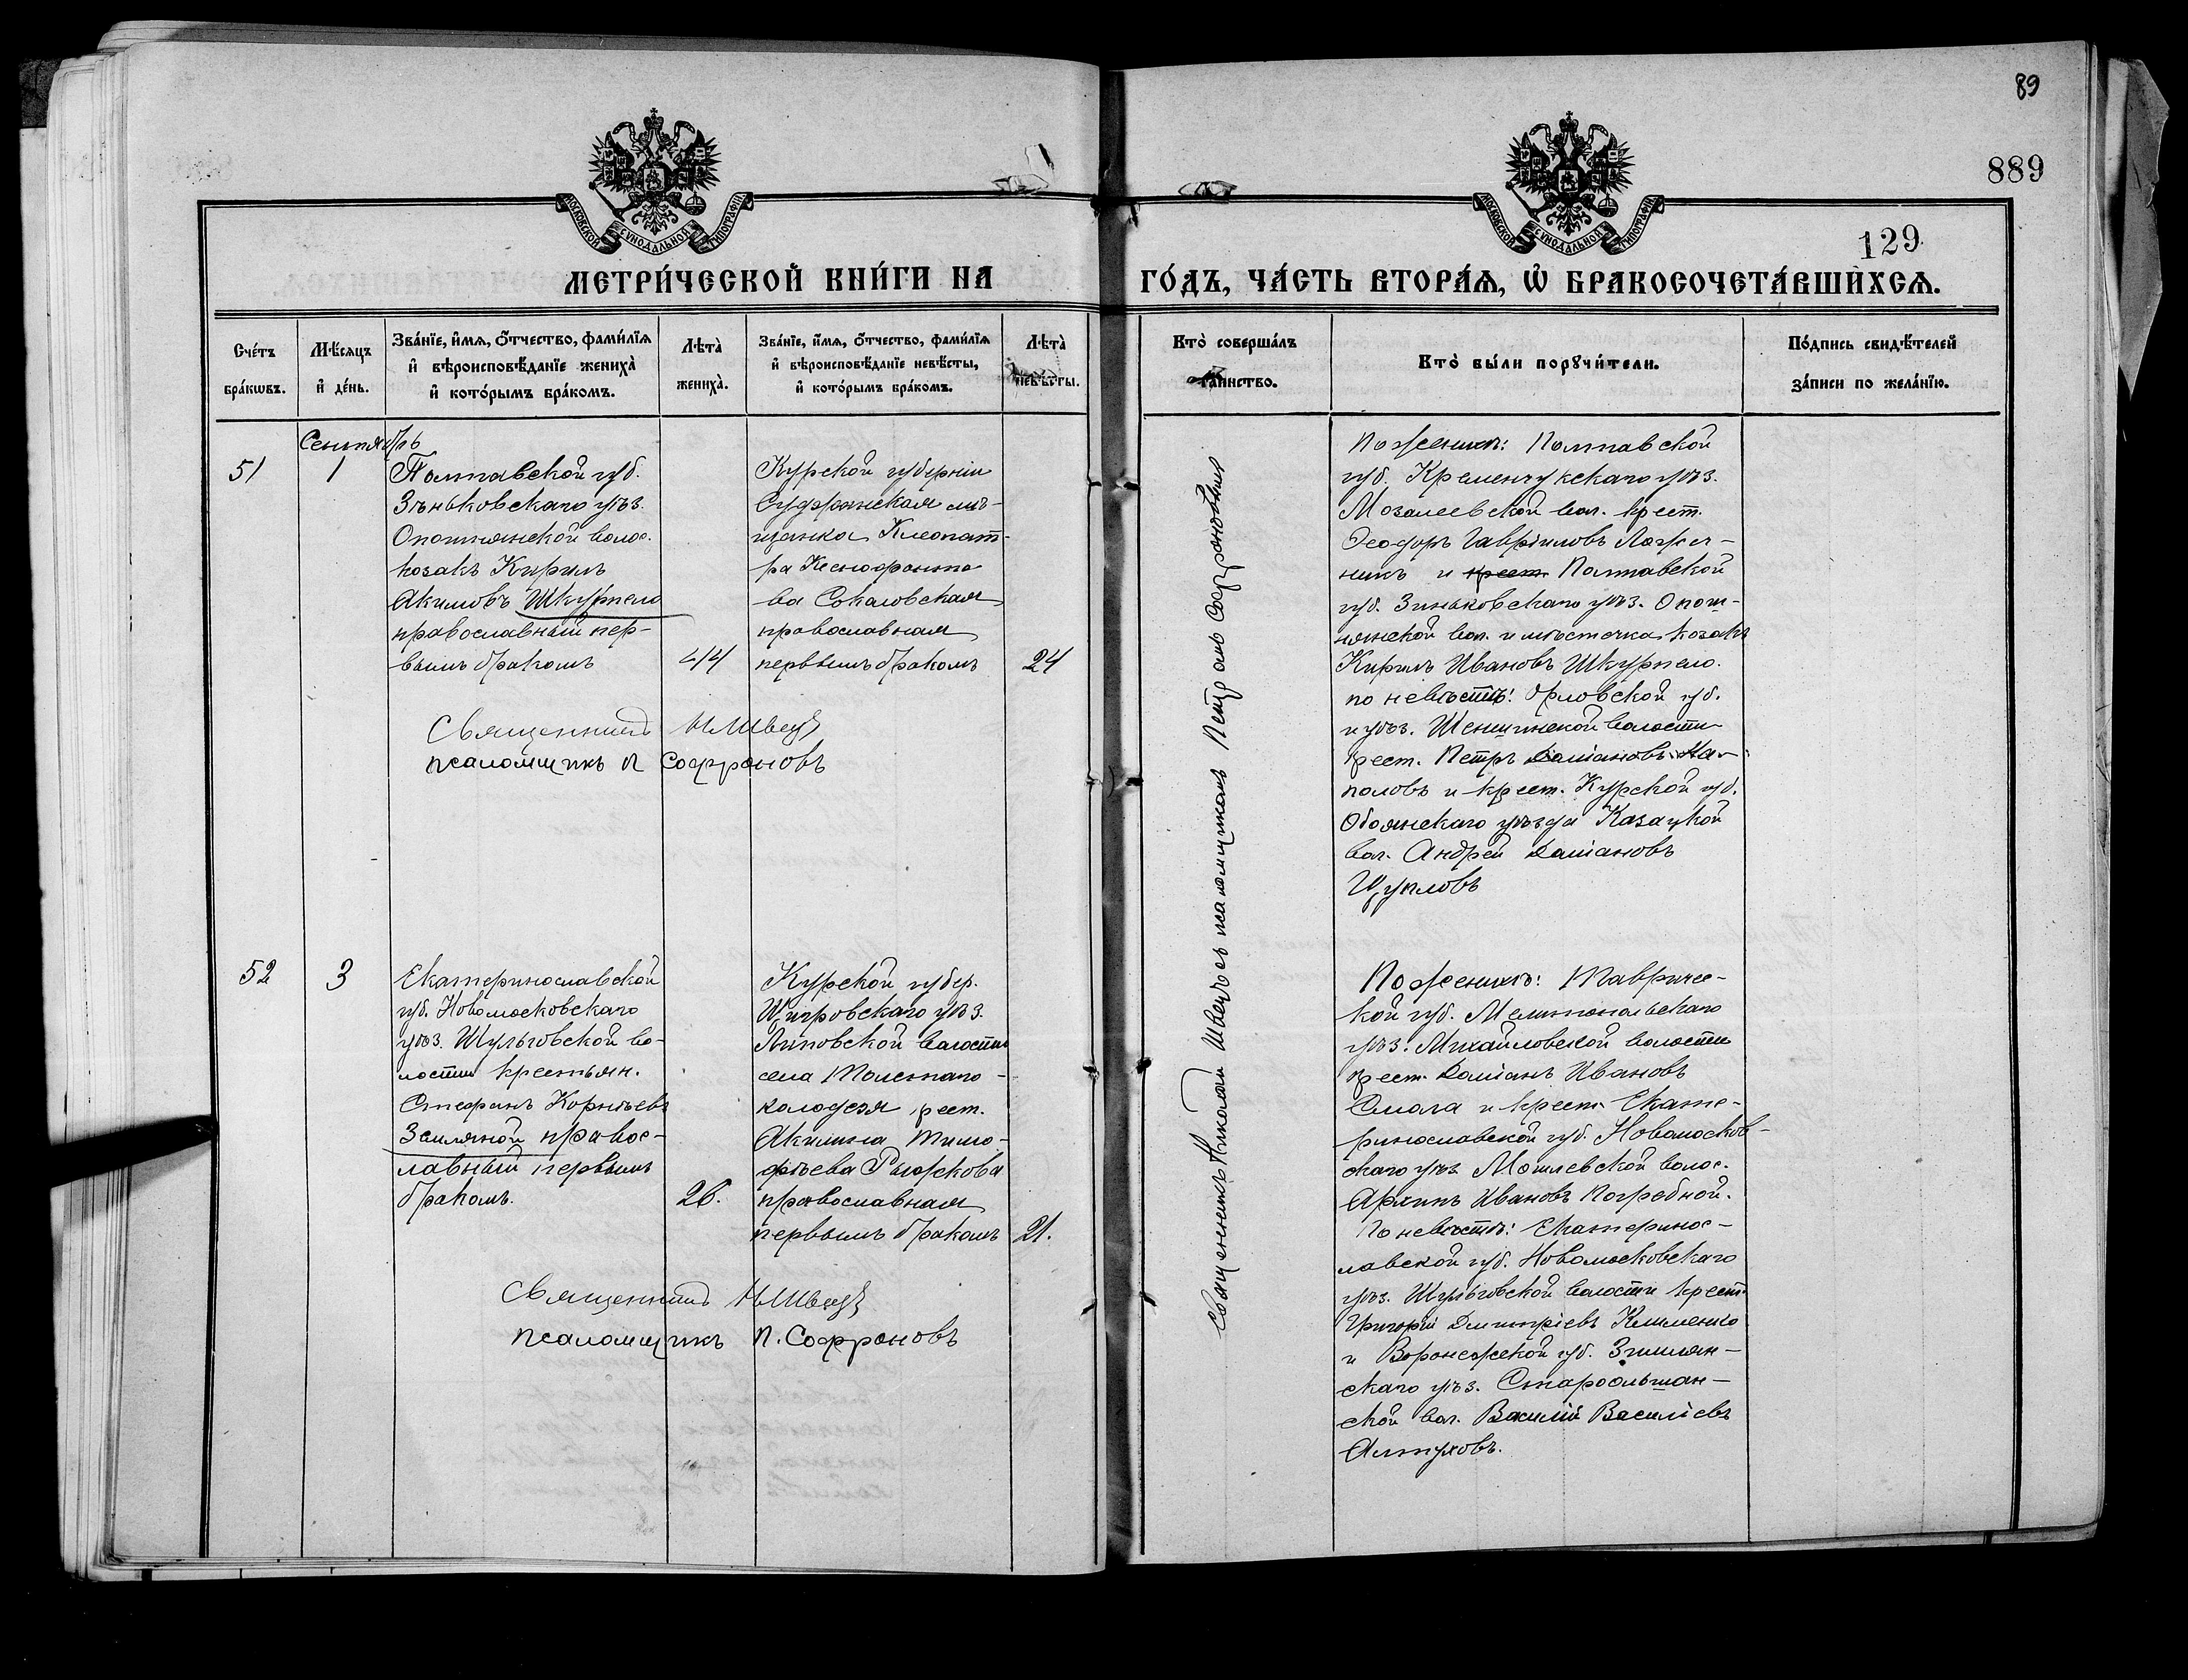 89
889
129
МОСКОВСКОЙ СѴНОДАЛЬНОЙ ТИПОГРАФІИ
МОСКОВСКОЙ СѴНОДАЛЬНОЙ ТИПОГРАФІИ
МЕТРИ́ЧЕСКОЙ КНИ́ГИ НА ГО́ДЪ, ЧА́СТЬ ВТОРА́Ѧ, Ѽ БРАКОСОЧЕТА́ВШИХСѦ.
Сче́тъ бра́кѡвъ.
Мѣ́сѧцъ и҆ де́нь.
Зва́нїе, и҆́мѧ, ѻ҆́тчество, фами́лїѧ
и҆ вѣроисповѣ́данїе жениха̀
и҆ кото́рымъ бра́комъ.
Лѣта̀ жениха̀.
Зва́нїе, и҆́мѧ, ѻ҆́тчество, фами́лїѧ
и҆ вѣроисповѣ́данїе невѣ́сты,
и҆ кото́рымъ бра́комъ.
Лѣта̀ невѣ́сты.
Кто̀ соверша́лъ
та́инство.
Кто̀ бы́ли порꙋчи́тели.
По́дпись свидѣ́телей
за́писи по жела́нїю.
Сентябрь
51
1
Полтавской губ.
Зѣньковскаго уѣз.
Опошнянской волос.
козакъ Кирилъ
Акимовъ Шкурпело
православный пер-
вымъ бракомъ
44
Курской губерніи
Суджанская мѣ-
щанка Клеопат-
ра Ксенофонто-
ва Соколовская
православная
первымъ бракомъ
24
Священникъ Н Швецъ
псаломщикъ П Софроновъ
Священникъ Николай Швецъ съ псаломщикомъ Петромъ Софроновымъ
По женихѣ: Полтавской
губ. Кременчукскаго уѣз.
Мозалеевской вол. крест.
Ѳеодоръ Гавріиловъ Ложеч-
никъ и крест. Полтавской
губ. Зиньковскаго уѣз. Опош-
нянской вол. и мѣстечка козакъ
Кирилъ Ивановъ Шкурпело.
по невѣстѣ: Орловской губ.
и уѣз. волости
крест. Петръ Даміановъ
и крест. Курской губ.
Обоянскаго уѣзда Казацкой
вол. Андрей Даміановъ
Щупловъ
52
3
Екатеринославской
губ. Новомосковскаго
уѣз. Шульговской во-
лости крестьян.
Стефанъ Корнѣевъ
Земляной правос-
лавный первымъ
бракомъ.
26.
Курской губер.
Щигровскаго уѣз.
Липовской волости
села Толстаго-
колодезя крест.
Акилина Тимо-
фѣева Рыжкова
православная
первымъ бракомъ
21.
Священникъ Н Швецъ
псаломщикъ П. Софроновъ
По женихѣ: Тавричес-
кой губ. Мелитопольскаго
уѣз. Михайловской волости
крест. Даміанъ Ивановъ
Смола и крест. Екате-
ринославской губ. Новомосков-
скаго уѣз. Могилевской волос.
Архипъ Ивановъ Погребной.
По невѣстѣ: Екатеринос-
лавской губ. Новомосковскаго
уѣз. Шульговской волости крест.
Григорій Димитріевъ Клименко
и Воронежской губ. Землян-
скаго уѣз. Староольшан-
ской вол. Василій Василіевъ
Алтуховъ.